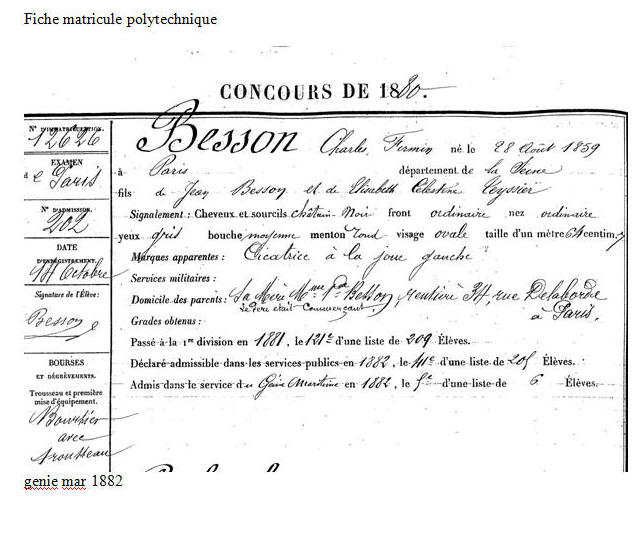 Fiche matricule polytechnique
CONCOURS DE 1880.
N° D'IMMATRICULATION.
12626
EXAMEN
de Paris
N° D'ADMISSION.
202
DATE
D'ENREGISTREMENT.
14 Octobre
Signature de l'Élève:
Besson
BOURSES
ET DÉGRÈVEMENTS.
Trousseau et première
mise d'équipement.
Boursier
avec
trousseau
Besson Charles, Firmin né le 28 Août 1859
à Paris département de la Seine
fils de Jean Besson et de Elisabeth Célestine Teyssier
Signalement : Cheveux et sourcils châtain-Noir front ordinaire nez ordinaire
yeux gris bouche moyenne menton rond visage ovale taille d'un mètre 64 centim.
Marques apparentes : Cicatrice à la joue gauche
Services militaires :
Domicile des parents : Sa Mère Mme Besson, rentière 34, rue Delaborde
Le Père était Commerçant. à Paris.
Grades obtenus :
Passé à la 1re division en 1881, le 121e d'une liste de 209 Élèves.
Déclaré admissible dans les services publics en 1882, le 41e d'une liste de 205 Élèves.
Admis dans le service du Génie Maritime en 1882, le 5e d'une liste de 6 Élèves.
genie mar 1882